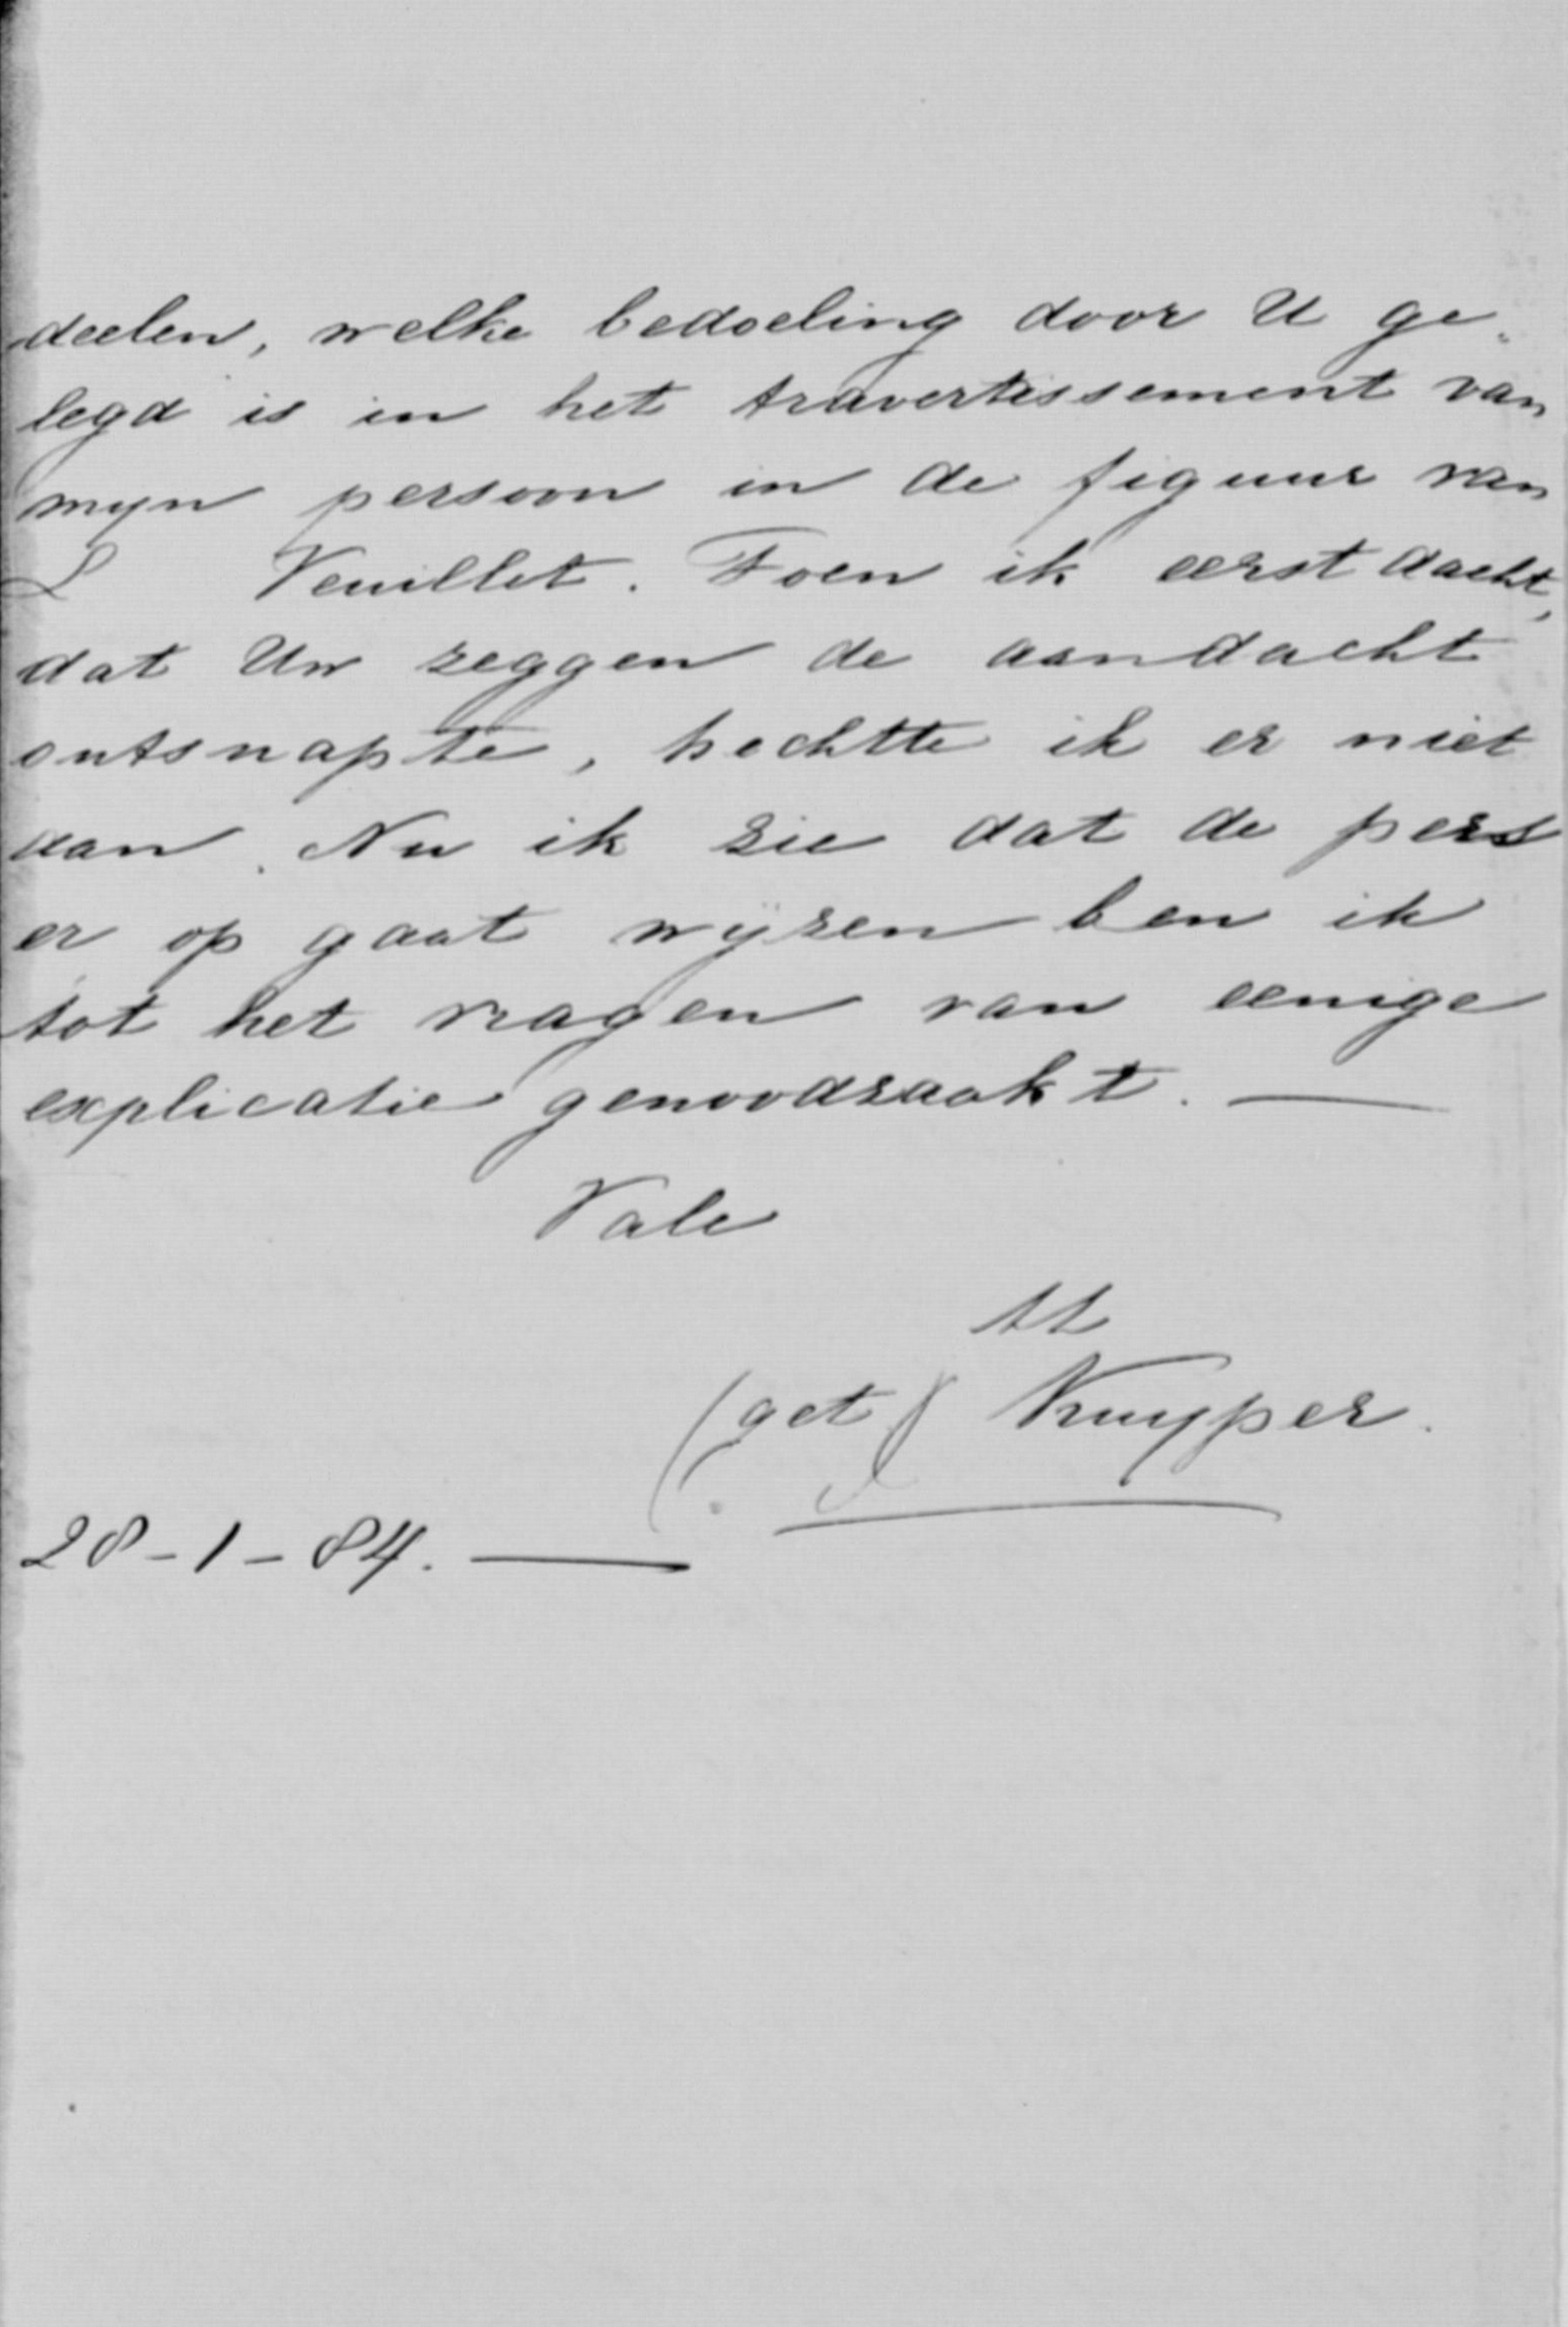 deelen, welke bedoeling door U ge-
legd is in het travertissement van
mijn persoon in de figuur van
L Veuillet. Toen ik eerst dacht,
dat Uw zeggen de aandacht
ontsnapte, hechtte ik er niet
aan. Nu ik zie dat de pers
er op gaat wijzen ben ik
tot het vragen van eenige
explicatie genoodzaakt. —
Vale
tt
(get) Kuyper.
28-1-84. —